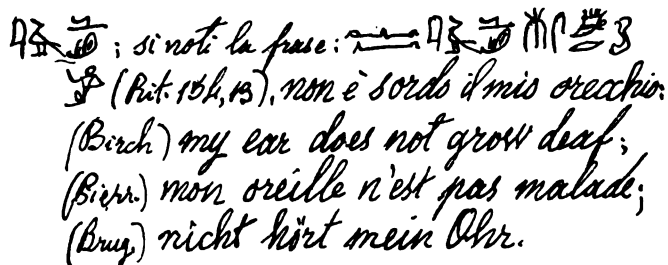 ; si noti la frase:
(Rit. 154, 13), non è sordo il mio orecchio:
(Birch) my ear does not grow deaf;
(Pierr.) mon oreille n'est pas malade;
(Brug.) nicht hört mein Ohr.